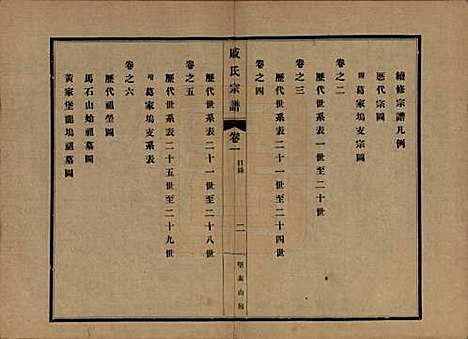 續修宗譜凡例
歷代宗圖
卷之二
附葛家塢支宗圖
卷之三
歷代世系表一世至二十世
卷之四
歷代世系表二十一世至二十四世
戚氏宗譜
卷一
目錄
二
歷代世系表二十五世至二十八世
卷之五
歷代世系表二十一世至二十四世
附葛家塢支系表
卷之六
歷代祖塋圖
馬石山始祖墓圖
黃家堡龍塢祖墓圖